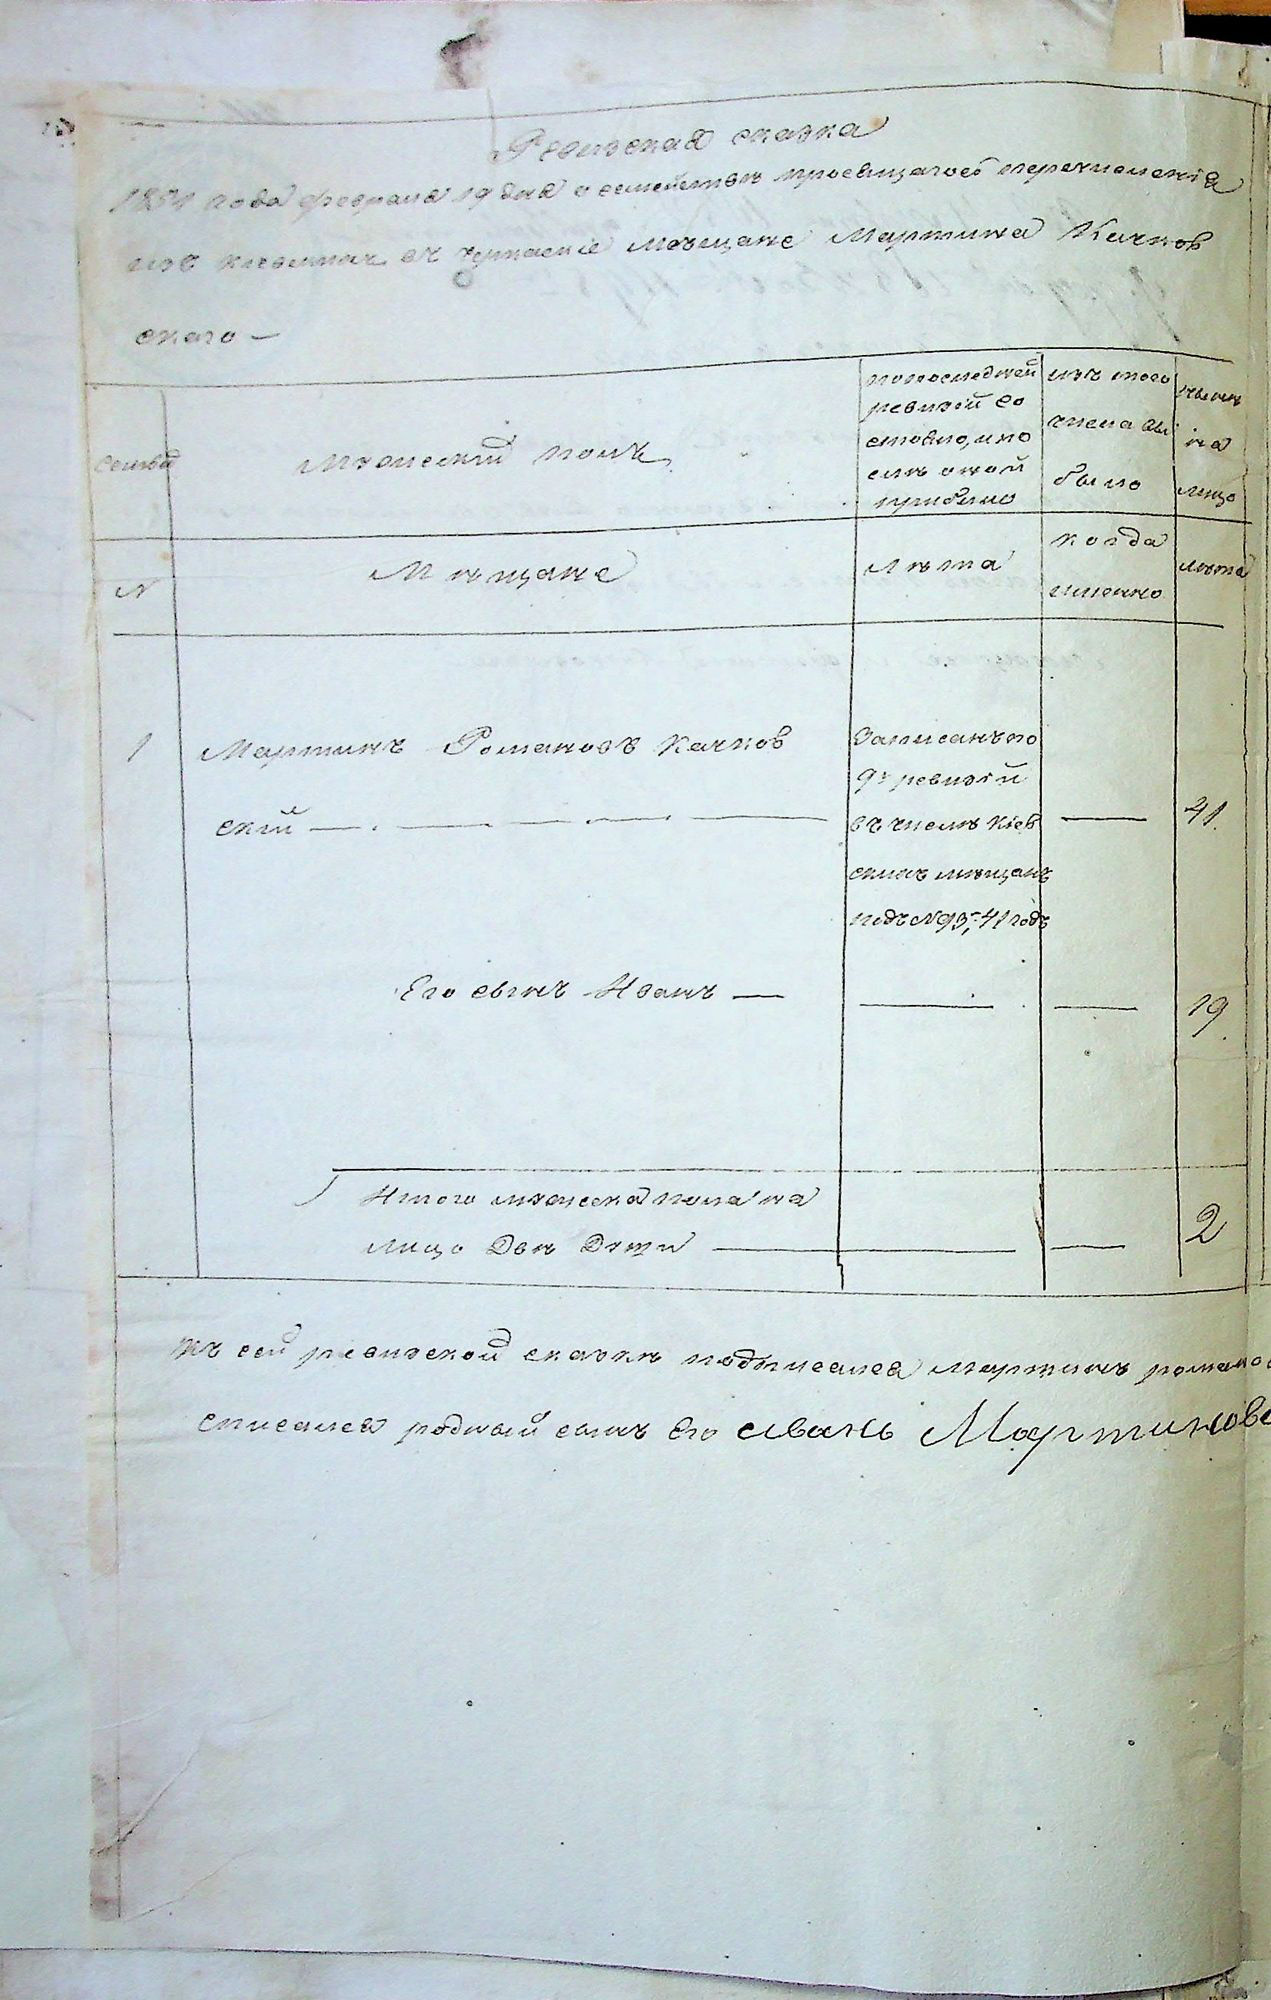 Ревизская сказка
1851 года февраля 19 дня о семействѣ просящагося перечисленія
изъ кіевскихъ въ мѣщане Мартина Качков
скаго —
семья
мужескій полъ
по последней
ревизіи со
стояло, и по
слѣ оной
прибыло
изъ того
числа вы
было
нынѣ
на
лицо
N
Мѣщане
Лѣта
когда
имянно
лѣта
1
Мартинъ Романовъ Качков
скій
Записанъ по
9й ревизіи
въ числѣ Кіев
скихъ мѣщанъ
подъ N 95, 41 годъ
41
Его сынъ Иванъ —
19
Итого мужеска пола на
лицо Двѣ Души
2
Къ сей ревизской сказкѣ подписался Мартинъ романо
родный сынъ Его Иванъ Мартинове